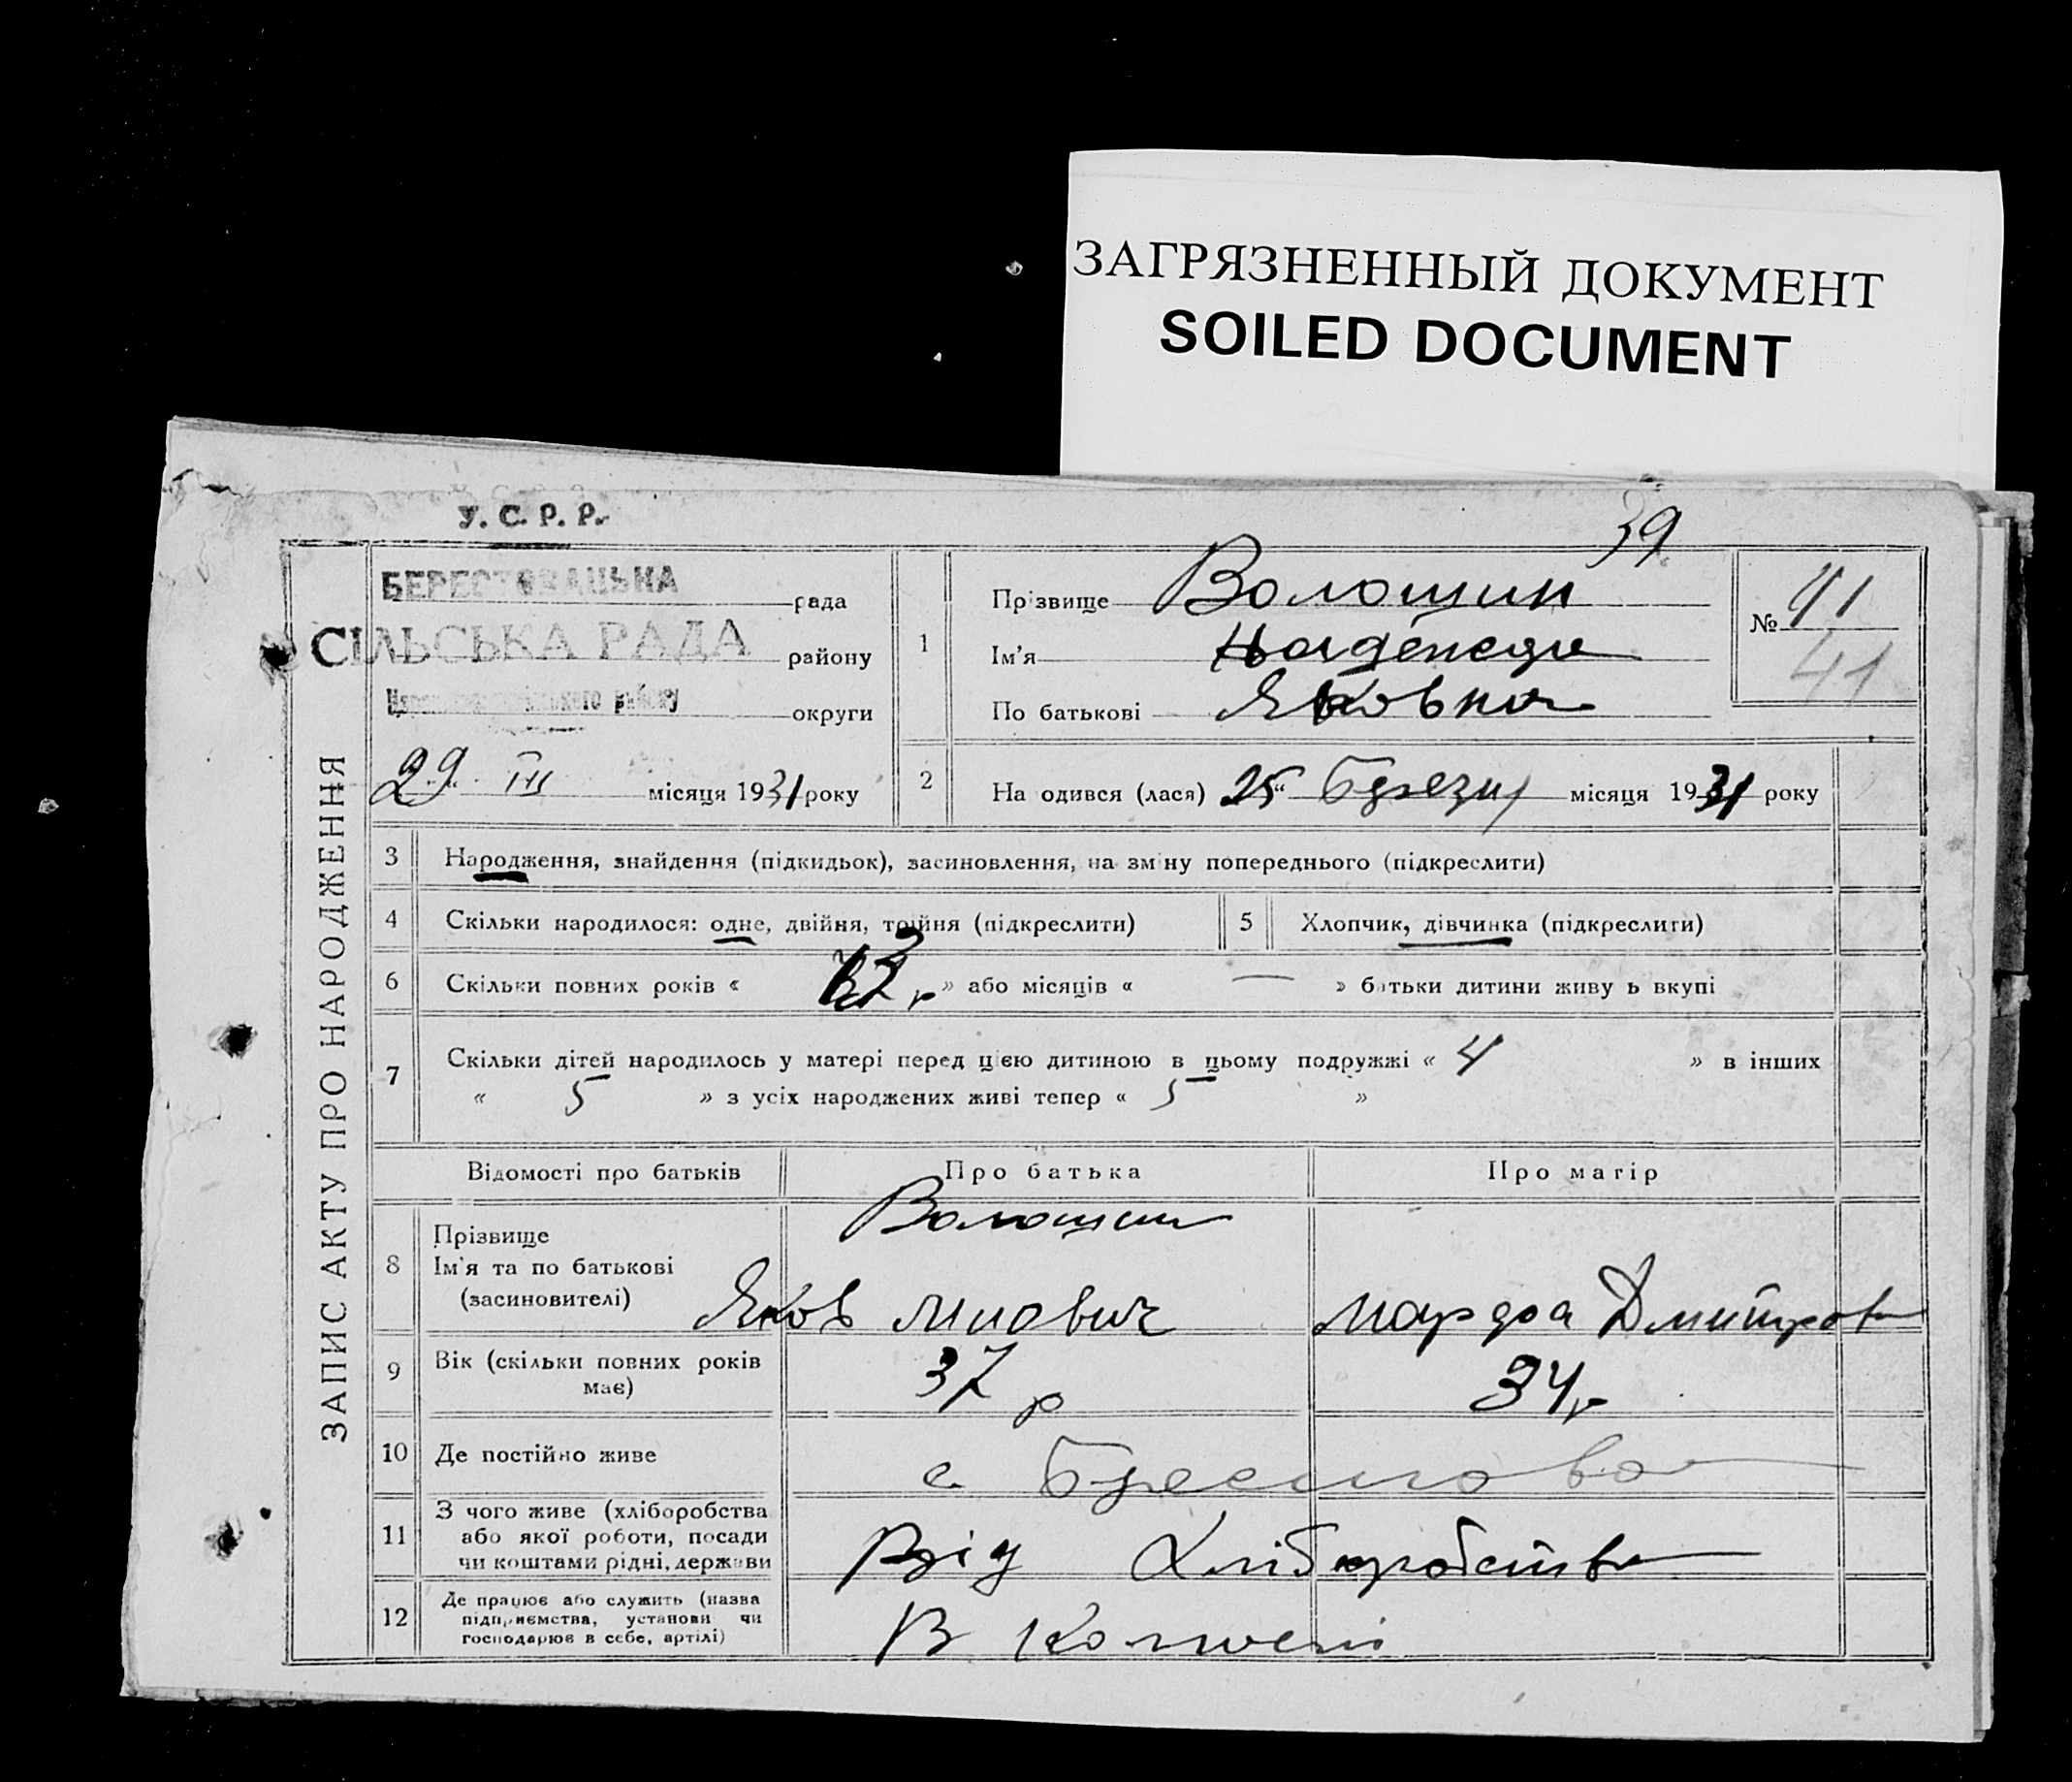 ЗАГРЯЗНЕННЫЙ ДОКУМЕНТ
SOILED DOCUMENT
39
У. С. Р. Р.
ЗАПИС АКТУ ПРО НАРОДЖЕННЯ
рада
СІЛЬСЬКА РАДА
району
району
округи
29 III місяця 1931 року
1
Прізвище Волошин
Ім'я
По батькові Яковна
№ 41
41
2 На одився (лася) 25 “ місяця 1931 року
3 Народження, знайдення (підкидьок), засиновлення, на зміну попереднього (підкреслити)
4 Скільки народилося: одне, двійня, трійня (підкреслити) 5 Хлопчик, дівчинка (підкреслити)
6 Скільки повних років « » або місяців « — » батьки дитини живу ь вкупі
7 Скільки дітей народилось у матері перед цією дитиною в цьому подружжі « 4 » в інших
« 5 » з усіх народжених живі тепер « 5 »
Відомості про батьків Про батька Про матір
8 Прізвище Волошин
Ім'я та по батькові
(засиновителі) Яков
9 Вік (скільки повних років має) 37 р 34 р
10 Де постійно живе с
11 З чого живе (хліборобства
або якої роботи, посади
чи коштами рідні, держави Від Хліборобства
12 Де працює або служить (назва
підприємства, установи чи
господарює в себе, артілі) В